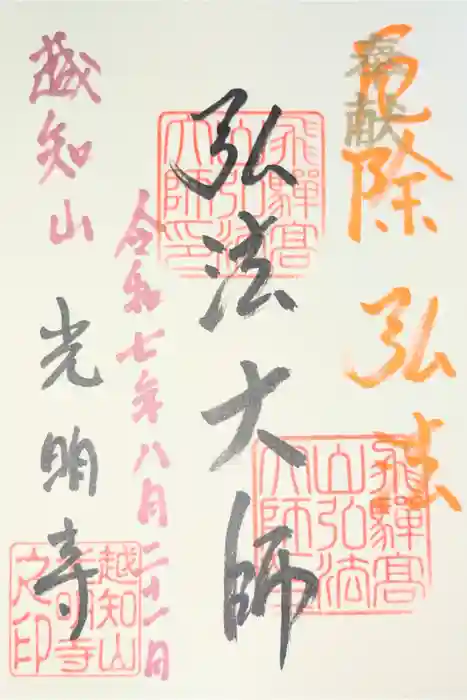 奉献
厄除 弘法
弘法大師
令和七年八月二十一日
越知山 光明寺
飛騨高
山弘法
大師印
飛騨高
山弘法
大師印
越知山
之印